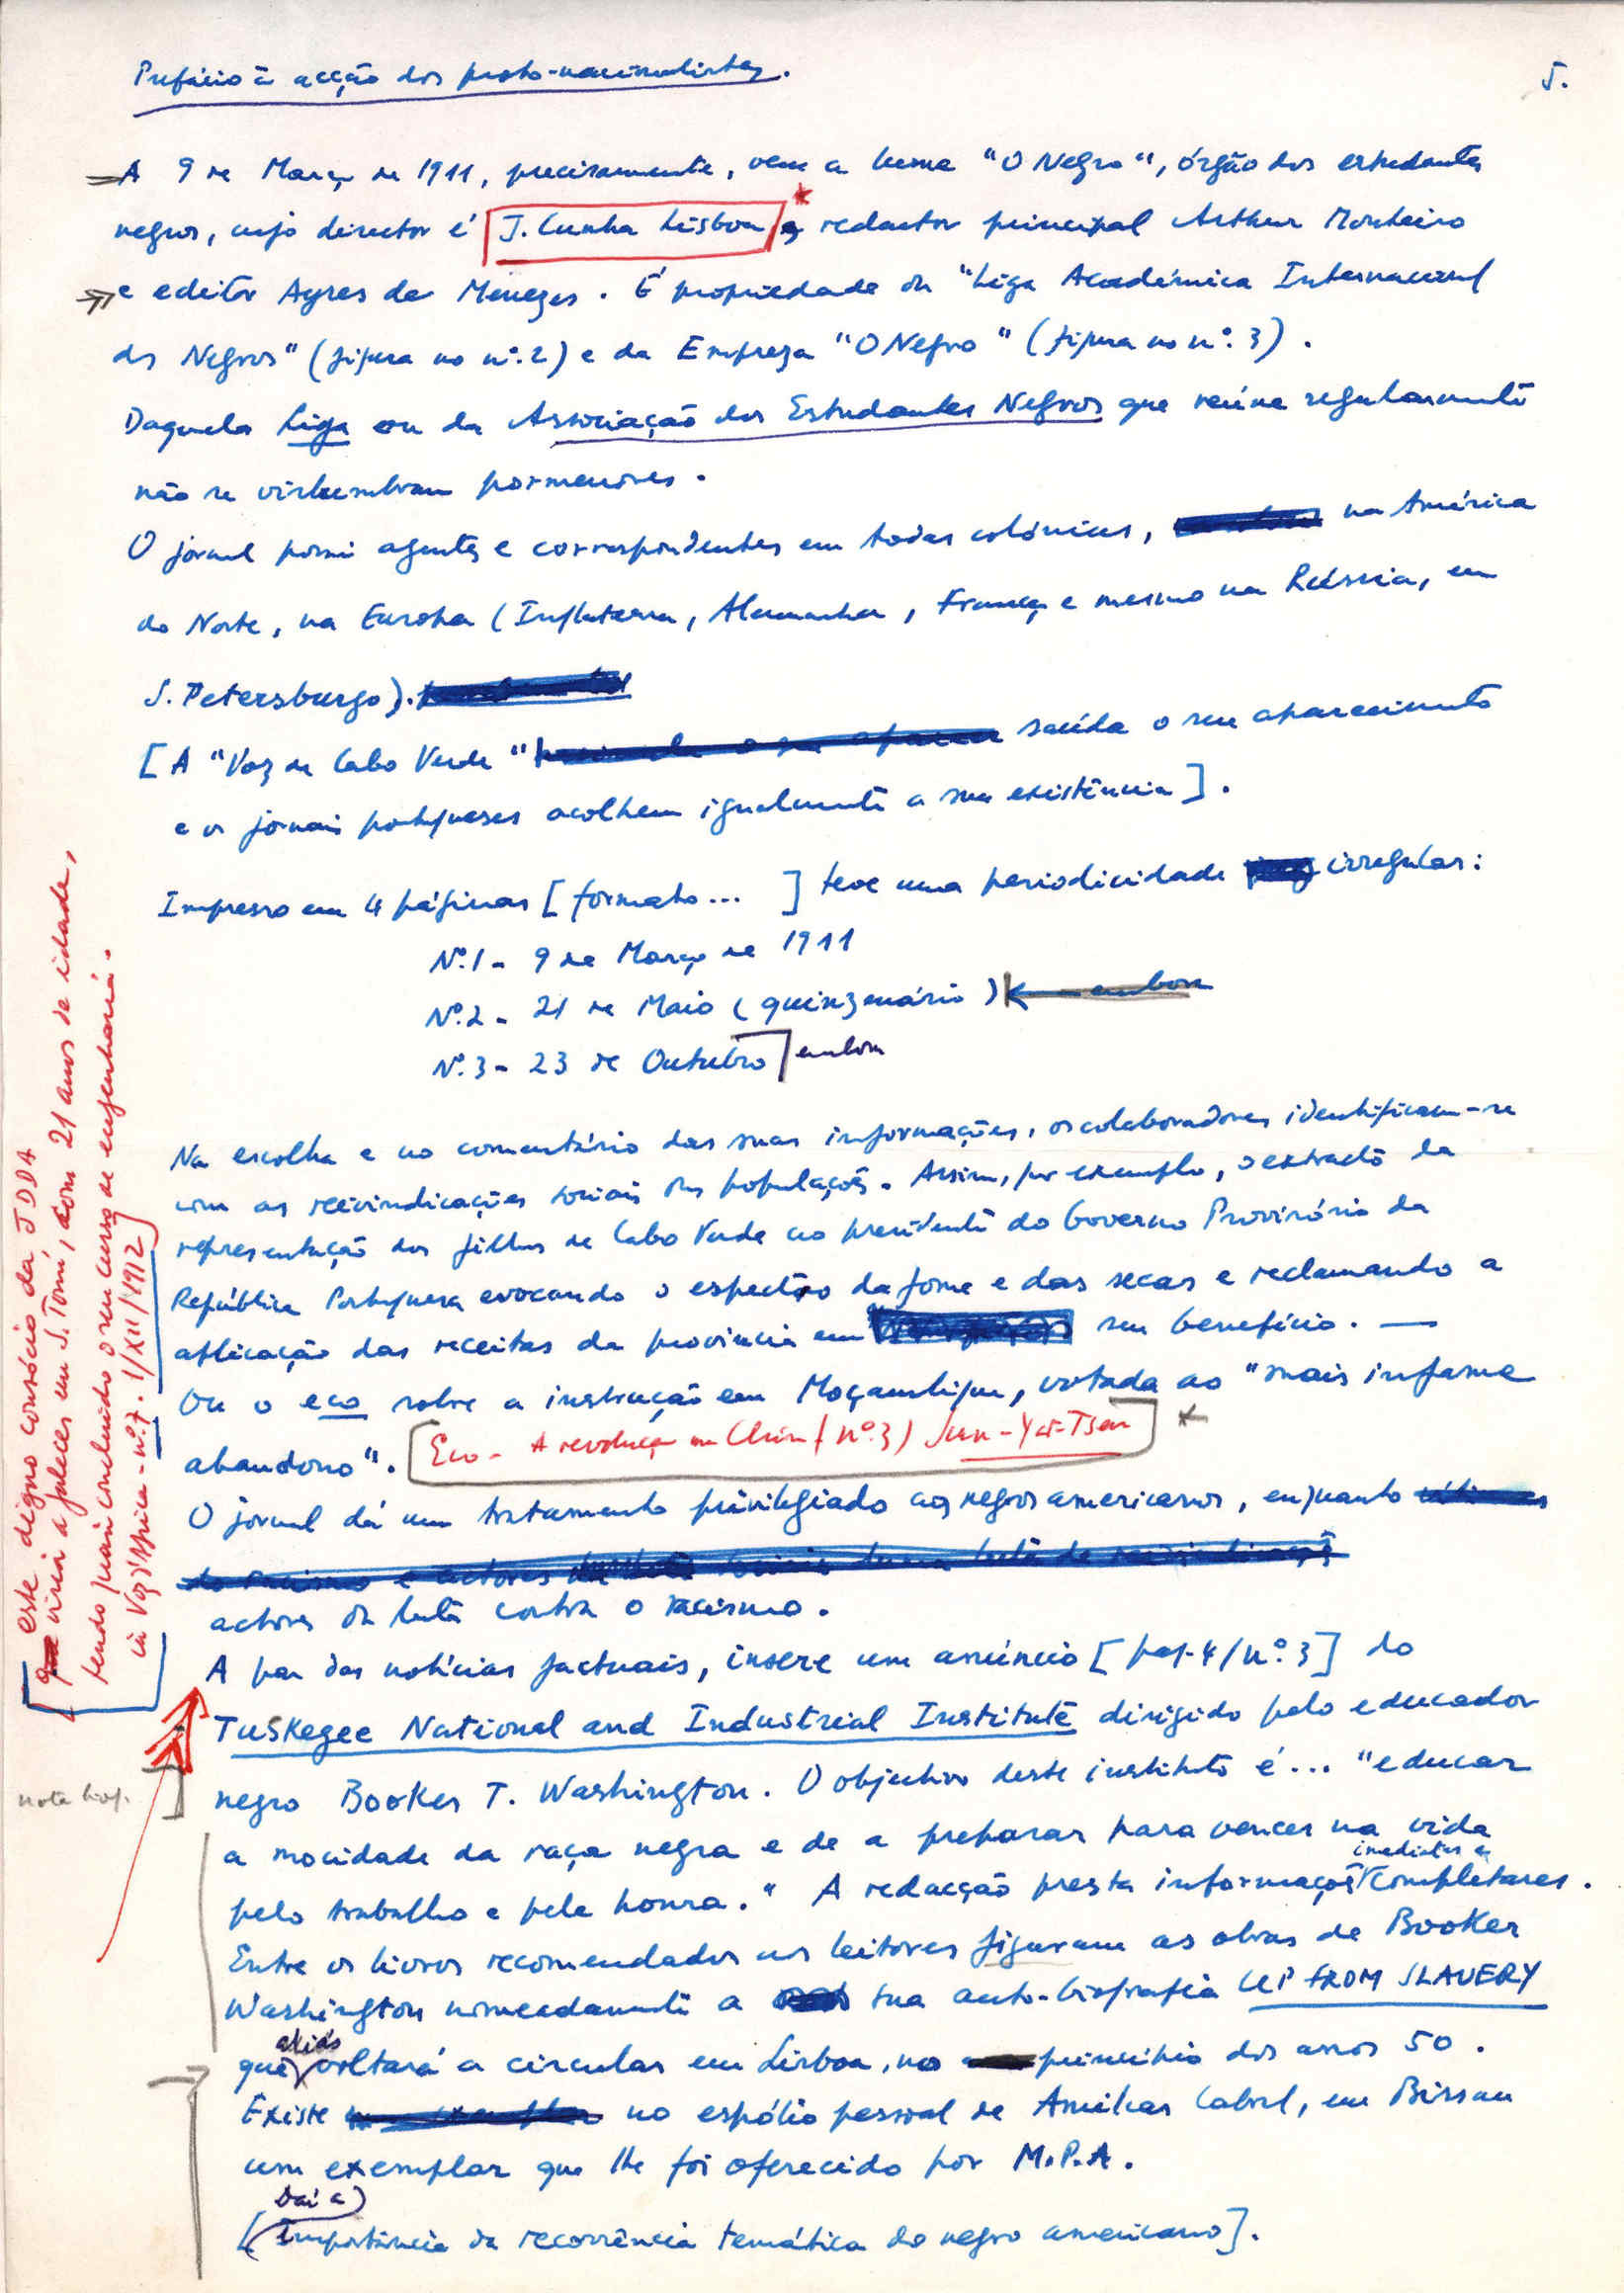 Prefácio à acção dos proto-nacionalistas.
5.
A 9 de Março de 1911, precisamente, vem a lume "O Negro", órgão dos estudantes
negros, cujo director é J. Cunha Lisboa, redactor principal Arthur Monteiro
e editor Ayres de Menezes. É propriedade da "Liga Académica Internacional
dos Negros" (figura no nº. 2) e da Empreza "O Negro" (figura no nº. 3).
Daquela Liga ou da Associação dos Estudantes Negros que reúne regularmente
não se vislumbram pormenores.
O jornal possui agentes e correspondentes em todas colónias, na América
do Norte, na Europa (Inglaterra, Alemanha, França e mesmo na Rússia, em
S. Petersburgo).
[A "Voz de Cabo Verde" saúda o seu aparecimento
e os jornais portugueses acolhem igualmente a sua existência].
Impresso em 4 páginas [formato... ] teve uma periodicidade irregular:
Nº. 1 - 9 de Março de 1911
Nº. 2 - 21 de Maio (quinzenário) embora
Nº. 3 - 23 de Outubro embora
Na escolha e no comentário das suas informações, os colaboradores identificam-se
com as reivindicações sociais das populações. Assim, por exemplo, o extracto da
representação dos filhos de Cabo Verde ao presidente do Governo Provisório da
República Portuguesa evocando o espectro da fome e das secas e reclamando a
aplicação das receitas da provincia em seu benefício. —
Ou o eco sobre a instrução em Moçambique, votada ao "mais infame
abandono". [Eco - A revolução na China (nº. 3) Sun-Yat-Tsen] *
O jornal dá um tratamento privilegiado aos negros americanos, enquanto
actores da luta contra o racismo.
A par das notícias factuais, insere um anúncio [pag. 4/nº. 3] do
Tuskegee National and Industrial Institute dirigido pelo educador
negro Booker T. Washington. O objectivo deste instituto é... "educar
a mocidade da raça negra e de a preparar para vencer na vida
pelo trabalho e pela honra." A redacção presta informações imediatas e completares.
Entre os livros recomendados aos leitores figuram as obras de Booker
Washington nomeadamente a sua auto-biografia UP FROM SLAVERY
que aliás voltará a circular em Lisboa, no princípio dos anos 50.
Existe no espólio pessoal de Amilcar Cabral, em Bissau
um exemplar que lhe foi oferecido por M.P.A.
[Daí a) Importância da recorrência temática do negro americano].
este digno consócio da JDDA
viria a falecer em S. Tomé, com 21 anos de idade,
tendo quasi concluido o seu curso de engenharia.
in Voz d'Africa - nº. 7. 1/XII/1912
nota biog.